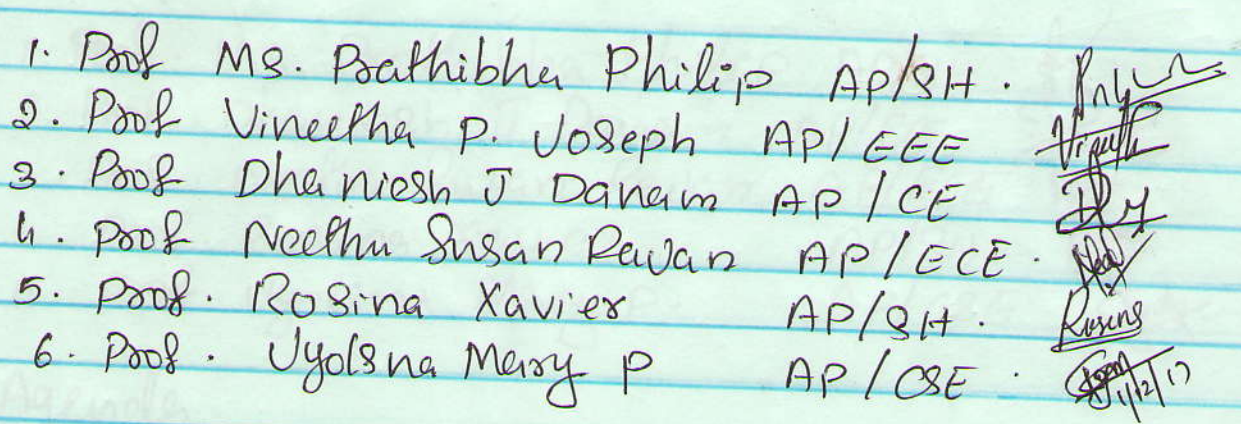 1. Prof Ms. Prathibha Philip AP/SH.
2. Prof Vineetha P. Joseph AP/EEE
3. Prof Dhaniesh J Danam AP/CE
4. Prof Neethu Susan Rajan AP/ECE.
5. Prof. Rosina Xavier AP/SH. Rosina
6. Prof. Jyolsna Mary P AP/CSE. 1/12/17